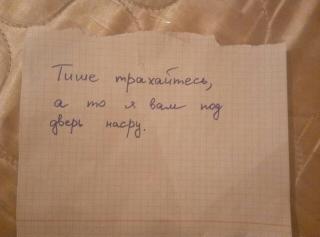 Тише трахайтесь,
а то я вам под
дверь насру.